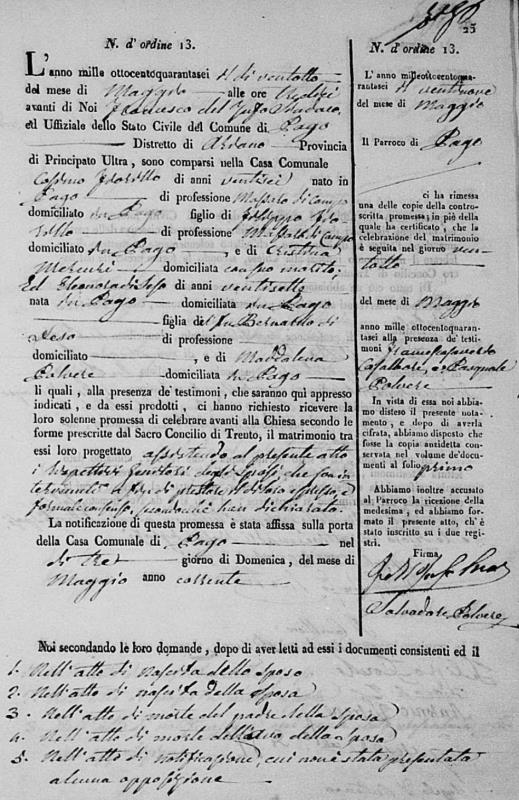 25
N. d' ordine 13.
L'anno mille ottocentoquarantasei il dì ventotto
del mese di Maggio alle ore tredici
avanti di Noi Francesco del Sindaco,
ed Uffiziale dello Stato Civile del Comune di Pago
Distretto di Provincia
di Principato Ultra, sono comparsi nella Casa Comunale
Cosimo di anni ventisei nato in
Pago di professione
domiciliato in Pago figlio di Filippo
di professione
domiciliato in Pago, e di Cristina
Mercuri domiciliata con suo marito;
Ed Eleonora di anni ventisette
nata in Pago domiciliata in Pago
figlia del fu Bernardo di
di professione
domiciliato , e di Maddalena
Polvere domiciliata in Pago
li quali, alla presenza de' testimoni, che saranno qui appresso
indicati, e da essi prodotti, ci hanno richiesto ricevere la
loro solenne promessa di celebrare avanti alla Chiesa secondo le
forme prescritte dal Sacro Concilio di Trento, il matrimonio tra
essi loro progettato assistendo al presente atto
i rispettivi genitori degli sposi che son in
tervenuti a fin di prestare il di loro espresso, e
formale consenso, han dichiarato.
La notificazione di questa promessa è stata affissa sulla porta
della Casa Comunale di Pago nel
dì tre giorno di Domenica, del mese di
Maggio anno corrente
N. d' ordine 13.
L' anno milleottocentoqua-
rantasei il ventinove
del mese di Maggio
Il Parroco di Pago
ci ha rimessa
una delle copie della contro-
scritta promessa; in piè della
qua ha certificato, che la
celebrazione del matrimonio
è seguita nel giorno ven
totto
del mese di Maggio
anno mille ottocentoquaran-
tasei alla presenza de' testi-
moni Francesco
e Pasquale
Polvere
In vista di essa noi abbia-
mo disteso il presente nota-
mento, e dopo di averla
cifrata, abbiamo disposto che
fosse la copia antidetta con-
servata nel volume de' docu-
menti al folio primo
Abbiamo inoltre accusato
al Parroco la ricezione della
medesima, ed abbiamo for-
mato il presente atto, ch' è
stato inscritto su i due regi-
stri.
Firma
Salvadore Polvere
Noi secondando le loro domande, dopo di aver letti ad essi i documenti consistenti ed il
1. Nell'atto di nascita dello sposo
2. Nell'atto di nascita della sposa
3. Nell'atto di morte del padre della sposa
4. Nell'atto di morte della sposa
5. Nell'atto di notificazione, cui non è stata presentata
alcuna opposizione